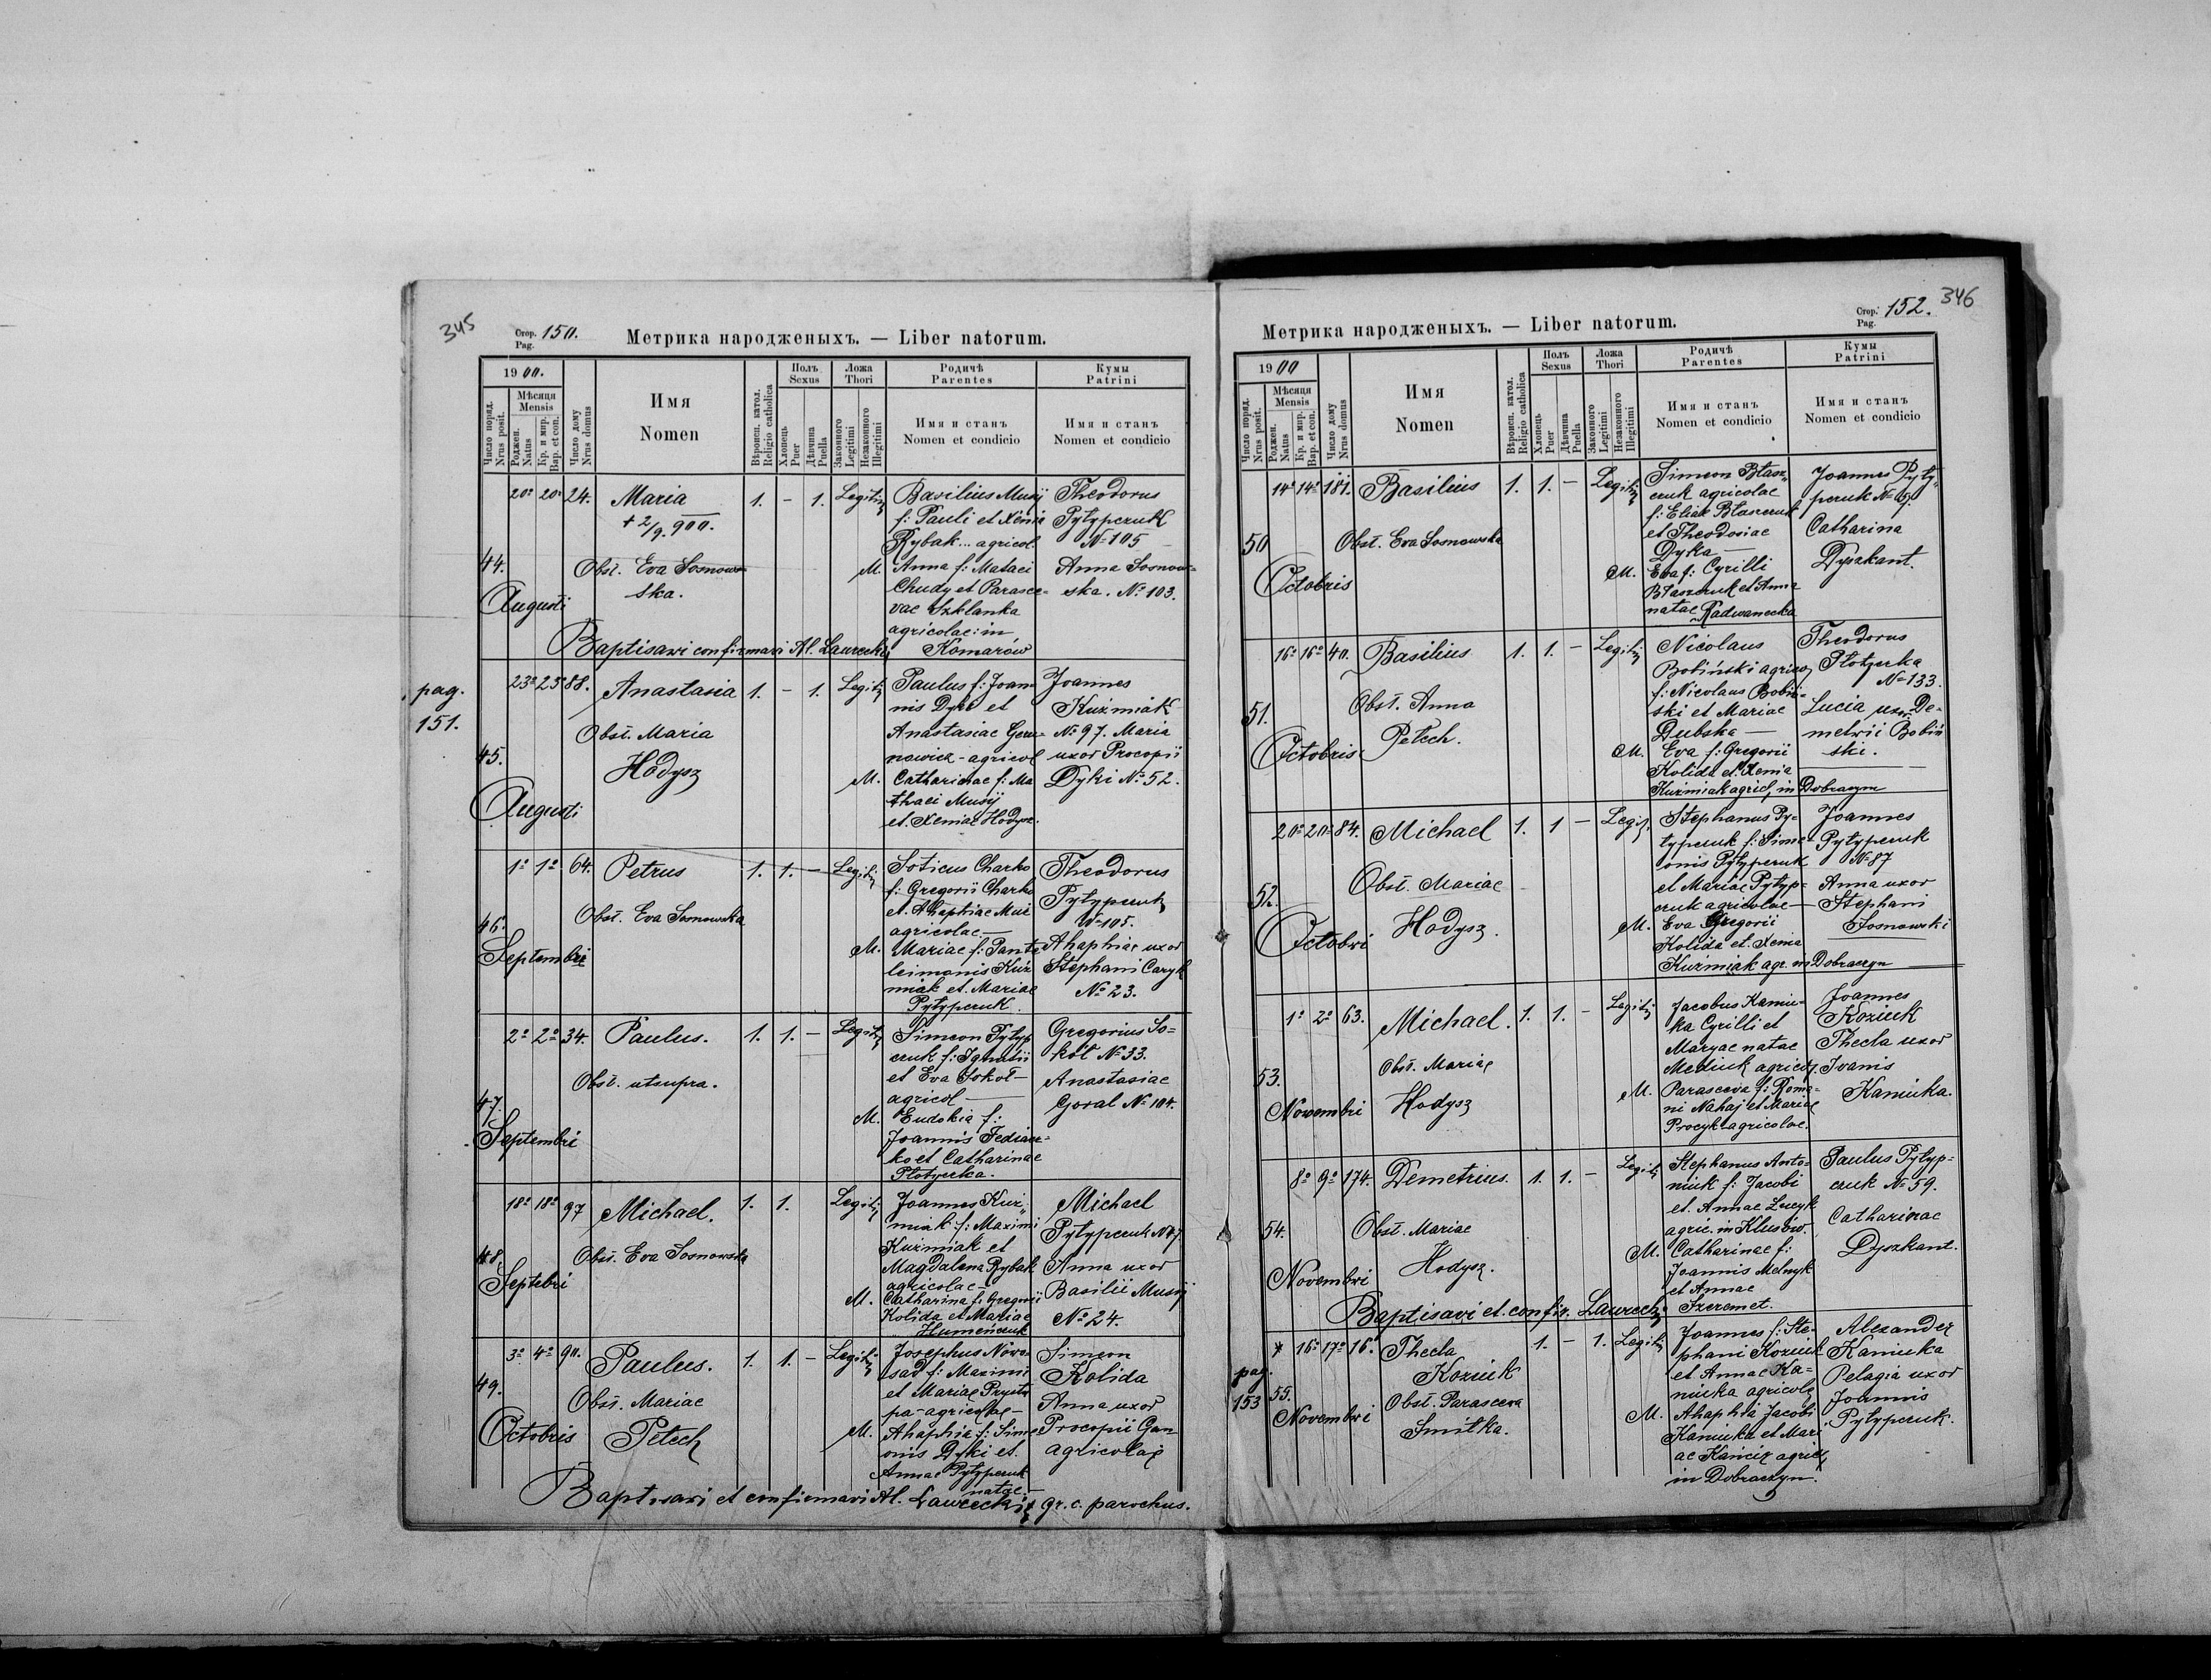 345
Стор. Pag. 150.
Метрика народженыхъ. — Liber natorum.
1900.
Число поряд. Nrus posit.
Мѣсяця Mensis
Роджен. Natus
Кр. и мир. Bap. et con.
Число дому Nrus domus
Имя Nomen
Вѣроисп. катол. Religio catholica
Полъ Sexus
Хлопець Puer
Дѣвчина Puella
Ложа Thori
Законного Legitimi
Незаконного Illegitimi
Родичѣ Parentes
Имя и станъ Nomen et condicio
Кумы Patrini
Имя и станъ Nomen et condicio
44. Augusti
20a 20a 24. Maria 1. - 1.
+ 2/9 900.
Obst. Eva Sosnow-
ska.
Basilius Musij
f: Pauli et Xenia
Rybak... agricol.
M. Anna f: Mataei
Chudy et Parasce-
vae Szklanka
agricolae: in
Komarów
Theodorus
Pytypczuk
No 105
Anna Sosnow-
ska. No 103.
Baptisavi confirmavi Al. Laurecki
pag.
151.
45. Augusti
23a 25 88. Anastasia 1. - 1.
Obst. Maria
Hodysz
Paulus f: Joan-
nis Dyki et
Anastasiae
agricol
M. Catharinae f: Ma
thaei Musij
et Xeniae Hodysz.
Joannes
Kuźmiak
No 97. Maria
uxor Procopii
Dyki No 52.
46. Septembri
1a 1a 64. Petrus 1. 1. -
Obst. Eva Sosnowska
Soticus Charko
f: Gregorii Charko
et Ahaphiae
agricolae
M. Mariae f: Pante
leimonis Kuź
miak et Mariae
Pytypczuk.
Theodorus
Pytypczuk
No 105.
Ahaphiae uxor
Stephani Caryk
No 23.
47. Septembri
2a 2a 34. Paulus. 1. 1. -
Obst. utsupra.
Simeon Pytyp
czuk f: Ignatii
et Eva Sokoł
agricol
M. Eudokia f:
Joannis Fedian-
ko et Catharinae
Płotycka.
Gregorius So-
kół No 33.
Anastasiae
Goral No 104.
48. Septebri
18a 18a 97 Michael. 1. 1.
Obst. Eva Sosnowska
Joannes Kuź
miak f: Maximi
Kuźmiak et
Magdalena Rybak
agricolae
M. Catharina f: Gregorii
Kolida et Mariae
Humeńczuk
Michael
Pytypczuk
Anna uxor
Basilii Musij
No 24.
49. Octobris
3a 4a 90. Paulus. 1. 1. -
Obst. Mariae
Petech
Josephus Nowo-
sad f: Maximi
et Mariae
agricolae
M. Ahaphia f: Sime
onis Dyki et
Annae Pytypczuk
natae
Simeon
Kolida
Anna uxor
Procopii Gan
agricolae
Baptisavi et confirmavi Al. Laurecki gr. c. parochus.
346
Стор. Pag. 152.
Метрика народженыхъ. — Liber natorum.
1900
Число поряд. Nrus posit.
Мѣсяця Mensis
Роджен. Natus
Кр. и мир. Bap. et con.
Число дому Nrus domus
Имя Nomen
Вѣроисп. катол. Religio catholica
Полъ Sexus
Хлопець Puer
Дѣвчина Puella
Ложа Thori
Законного Legitimi
Незаконного Illegitimi
Родичѣ Parentes
Имя и станъ Nomen et condicio
Кумы Patrini
Имя и станъ Nomen et condicio
50 Octobris
14a 14a 181. Basilius 1. 1. -
Obst. Eva Sosnowska
Simeon Błasz
czuk agricolae
f: Eliae Błaszczuk
et Theodosiae
Dyka
M. Eva f: Cyrilli
Błaszczuk et Anna
natae Radwanecka
Joannes Pyty
pczuk
Catharina
Dyszkant.
51. Octobris
16a 16a 40. Basilius 1. 1. -
Obst. Anna
Petech.
Nicolaus
Bobiński agrico
f: Nicolaus Bobiń-
ski et Mariae
Dubska
M. Eva f: Gregorii
Kolida et Xenia
Kuźmiak agricol, in Dobraczyn
Theodorus
Płotycka
No 133.
Lucia uxor De-
metrii Bobiń
ski.
52. Octobri
20a 20a 84. Michael 1. 1 -
Obst. Mariae
Hodysz.
Stephanus Py-
typczuk f: Sime-
onis Pytypczuk
et Mariae Pytyp-
czuk agricolae
M. Eva Gregorii
Kolida et Xenia
Kuźmiak agr. in Dobraczyn
Joannes
Pytypczuk
No 87
Anna uxor
Stephani
Sosnowski
53. Novembri
1a 2a 63. Michael. 1. 1. -
Obst. Mariae
Hodysz
Jacobus Kaniu-
ka Cyrilli et
Maryae natae
Mediuk agricol.
M. Parasceva f: Roma-
ni Nahaj et Mariae
Procyk agricolae.
Joannes
Koziuk
Thecla uxor
Ivanis
Kaniuka.
54. Novembri
8a 9a 174. Demetrius. 1. 1. -
Obst. Mariae
Hodysz.
Stephanus Anto-
niuk f: Jacobi
et Annae Lucyk
agric. in Klusow.
M. Catharinae f:
Joannis Melnyk
et Annae
Szeremet.
Paulus Pytyp-
czuk No 59.
Catharinae
Dyszkant.
Baptisavi et confir. Laurecki
pag.
153
55. Novembri
* 16a 17a 16. Thecla 1. - 1.
Koziuk
Obst. Parasceva
Smitka.
Joannes f: Ste-
phani Koziuk
et Annae Ka-
niuka agricolae
M. Ahaphia Jacobi
Kaniuka et Mari
ae Kańciz agric
in Dobraczyn.
Alexander
Kaniuka
Pelagia uxor
Joannis
Pytypczuk.